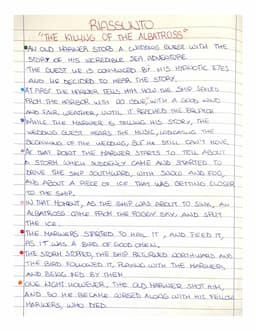 RIASSUNTO
"THE KILLING OF THE ALBATROSS"
AN OLD MARINER STOPS A WEDDING GUEST WITH THE
STORY OF HIS INCREDIBLE SEA ADVENTURE.
THE GUEST IS CONVINCED BY HIS HYPNOTIC EYES
AND HE DECIDED TO HEAR THE STORY.
AT FIRST THE MARINER TELLS HIM HOW THE SHIP SAILED
FROM THE HARBOUR WITH NO ISSUE, WITH A GOOD WIND
AND FAIR WEATHER, UNTIL IT REACHED THE EQUATOR
WHILE THE MARINER IS TELLING HIS STORY, THE
WEDDING GUEST HEARS THE MUSIC, INDICATING THE
BEGINNING OF THE WEDDING, BUT HE STILL CAN'T MOVE.
AT THAT POINT THE MARINER STARTS TO TELL ABOUT
A STORM WHICH SUDDENLY CAME AND STARTED TO
DRIVE THE SHIP SOUTHWARD, WITH SNOW AND FOG,
AND ABOUT A PIECE OF ICE THAT WAS GETTING CLOSER
TO THE SHIP.
IN THAT MOMENT, AS THE SHIP WAS ABOUT TO SINK, AN
ALBATROSS CAME FROM THE FOGGY SKY, AND SPLIT
THE ICE.
THE MARINERS STARTED TO HAIL IT, AND FEED IT,
AS IT WAS A BIRD OF GOOD OMEN.
THE STORM STOPPED, THE SHIP RETURNED NORTHWARD AND
THE BIRD FOLLOWED IT, PLAYING WITH THE MARINERS,
AND BEING FED BY THEM.
ONE NIGHT HOWEVER, THE OLD MARINER SHOT HIM,
AND SO HE BECAME CURSED ALONG WITH HIS FELLOW
MARINERS, WHO DIED.